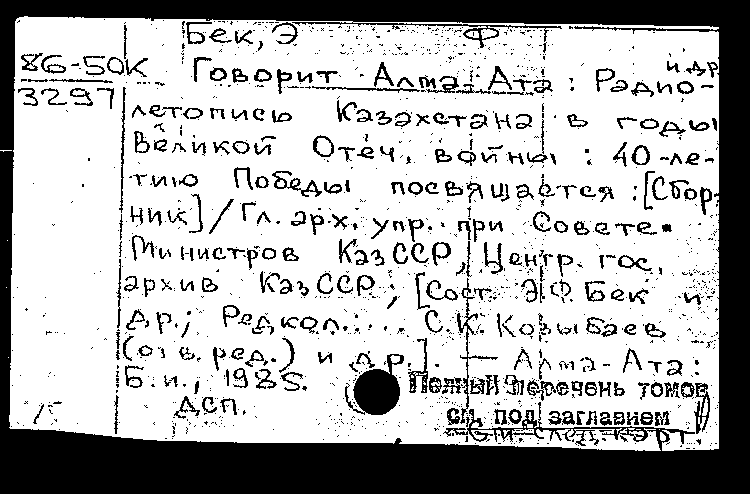 Бек, Э Ф
и др.
86-50К
3297
Говорит Алма-Ата : Радио-
летопись Казахстана в годы
Великой Отеч. войны : 40-ле-
тию Победы посвящается : [Сбор-
ник] / Гл. арх. упр. при Совете
Министров КазССР, Центр. гос.
архив КазССР; [Сост. Э.Ф. Бек и
др.; Редкол.: ... С.К. Козыбаев
(отв. ред.) и др.]. — Алма-Ата :
Б.и., 1985.
ДСП.
Полный перечень томов
см. под заглавием
См. след. карт.